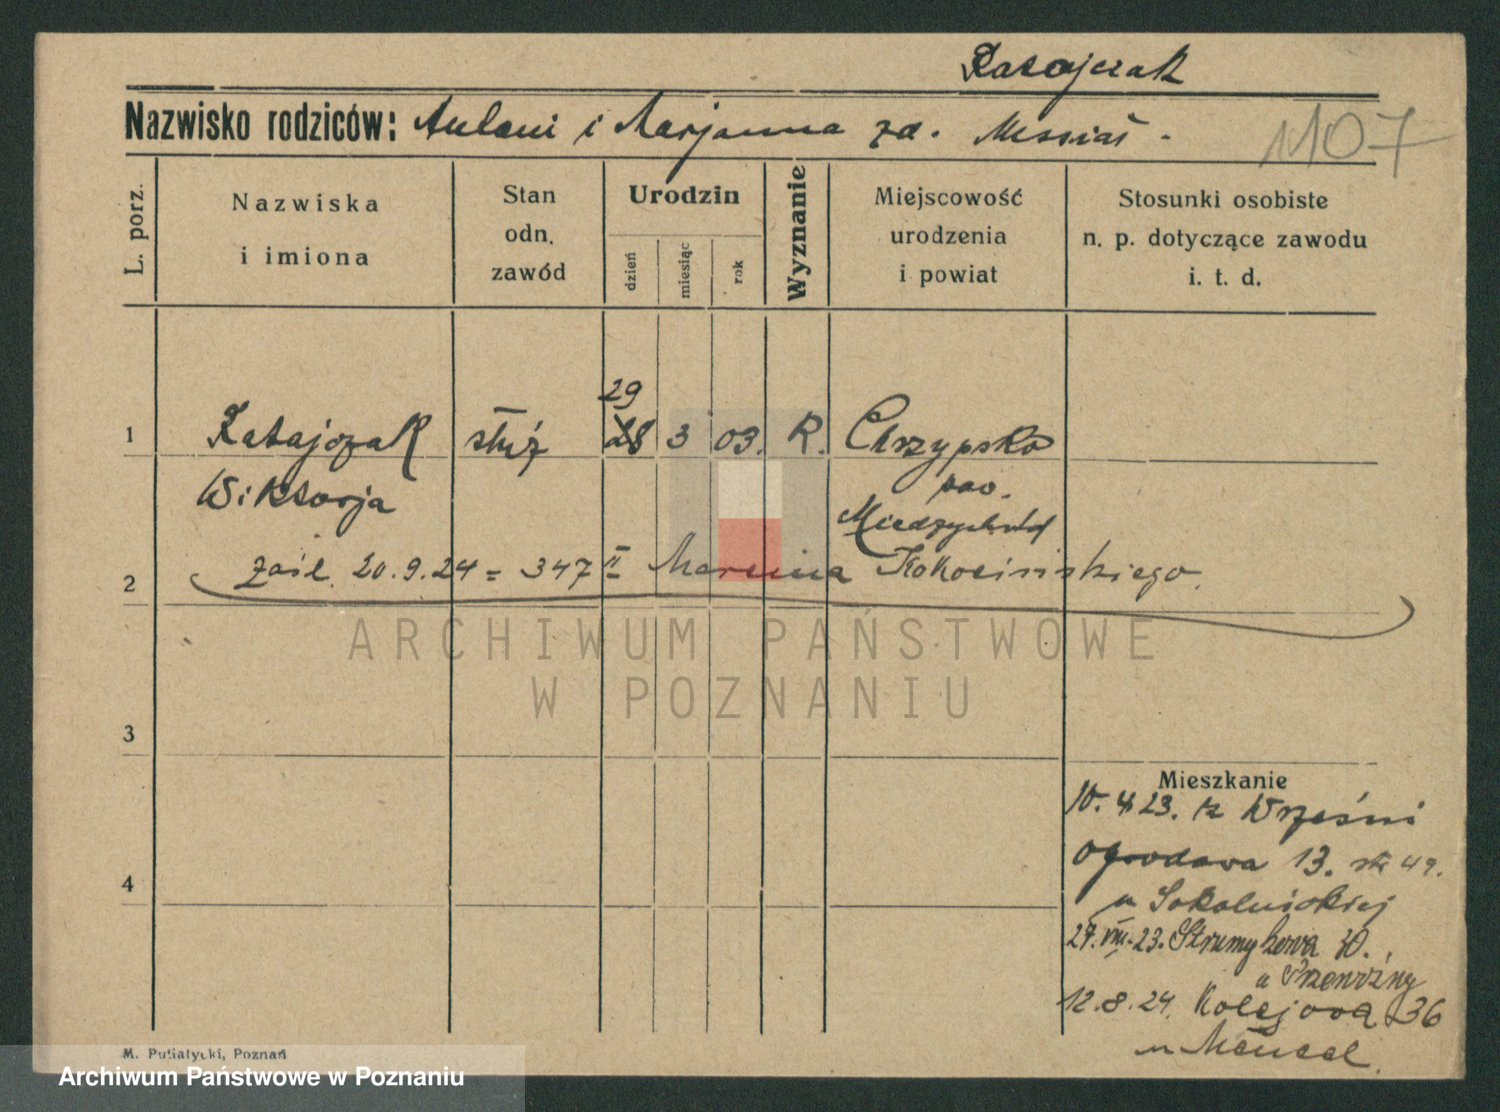 Ratajczak
Nazwisko rodziców: Antoni i Marjanna zd. Messiał.
1107
L. porz.
Nazwiska
i imiona
Stan
odn.
zawód
Urodzin
dzień
miesiąc
rok
Wyznanie
Miejscowość
urodzenia
i powiat
Stosunki osobiste
n. p. dotyczące zawodu
i. t. d.
29
1 Ratajczak służ 28 3 03. R. Chrzypsko
Wiktorja pow.
Miedzychód
2 zaśl. 20.9.24 = 347 II Marcina Kokocińskiego.
ARCHIWUM PAŃSTWOWE
W POZNANIU
3
4
Mieszkanie
10. 4 23. z Wrześni
Ogrodowa 13. 49.
u Sokolnickiej
27. VIII. 23. Strumykowa 10.
u
12.8.24. Kolejowa 36
u Mencel.
M. Putiatycki, Poznań
Archiwum Państwowe w Poznaniu